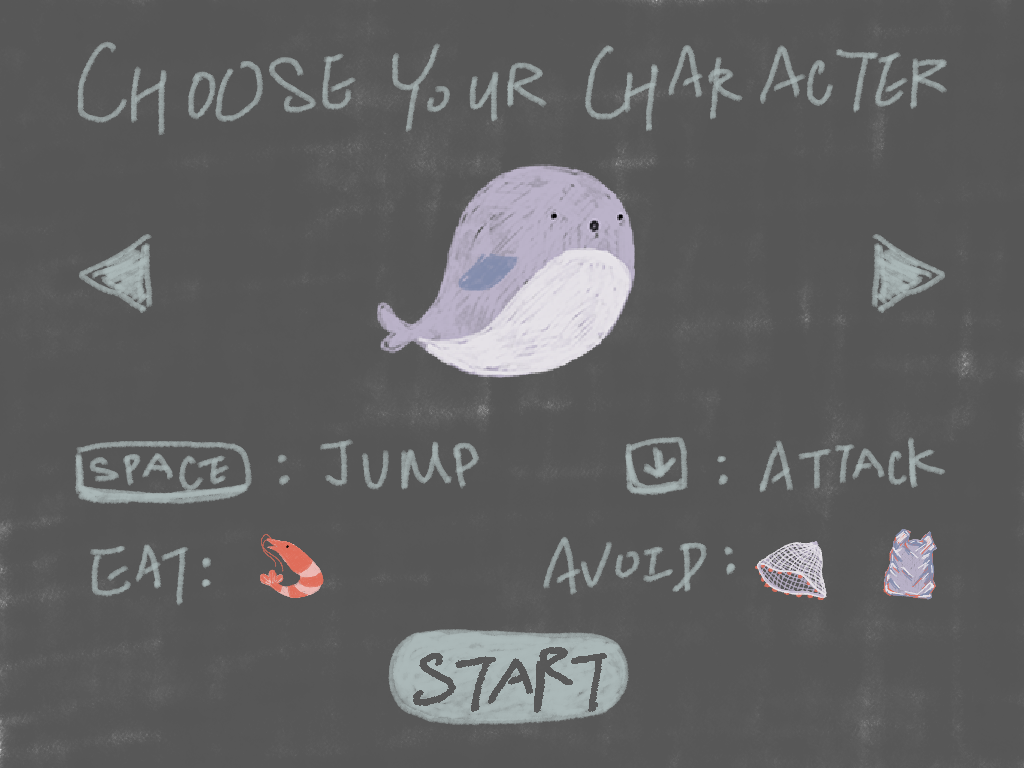 CHOOSE YOUR CHARACTER
SPACE : JUMP ↓ : ATTACK
EAT: AVOID:
START